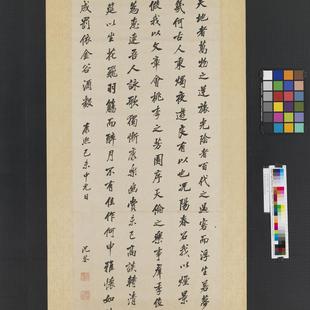 天地者萬物之逆旅光陰者百代之過客而浮生若夢
幾何古人秉燭夜遊良有以也況陽春召我以煙景
假我以文章會桃李之芳園序天倫之樂事羣季俊
為惠連吾人詠歌獨慚康樂幽賞未已高談轉清
筵以坐花飛羽觴而醉月不有佳作何申雅懷如
成罰依金谷酒數
康熙己未中元日
沈荃